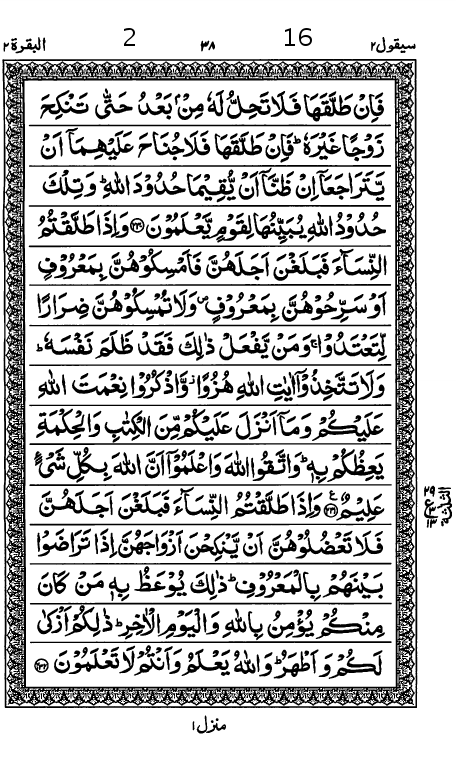 سيقول٢ 16 ٣٨ 2 البقرة٢
فَاِنْ طَلَّقَهَا فَلَا تَحِلُّ لَهٗ مِنْۢ بَعْدُ حَتّٰى تَنْكِحَ
زَوْجًا غَيْرَهٗ ؕ فَاِنْ طَلَّقَهَا فَلَا جُنَاحَ عَلَيْهِمَاۤ اَنْ
يَّتَرَاجَعَاۤ اِنْ ظَنَّاۤ اَنْ يُّقِيْمَا حُدُوْدَ اللّٰهِ ؕ وَتِلْكَ
حُدُوْدُ اللّٰهِ يُبَيِّنُهَا لِقَوْمٍ يَّعْلَمُوْنَ ﴿۲۳۰﴾ وَاِذَا طَلَّقْتُمُ
النِّسَآءَ فَبَلَغْنَ اَجَلَهُنَّ فَاَمْسِكُوْهُنَّ بِمَعْرُوْفٍ
اَوْ سَرِّحُوْهُنَّ بِمَعْرُوْفٍ ۪ وَلَا تُمْسِكُوْهُنَّ ضِرَارًا
لِّتَعْتَدُوْا ۚ وَمَنْ يَّفْعَلْ ذٰلِكَ فَقَدْ ظَلَمَ نَفْسَهٗ ؕ
وَلَا تَتَّخِذُوْۤا اٰيٰتِ اللّٰهِ هُزُوًا ؗ وَّاذْكُرُوْا نِعْمَتَ اللّٰهِ
عَلَيْكُمْ وَمَاۤ اَنْزَلَ عَلَيْكُمْ مِّنَ الْكِتٰبِ وَالْحِكْمَةِ
يَعِظُكُمْ بِهٖ ؕ وَاتَّقُوا اللّٰهَ وَاعْلَمُوْۤا اَنَّ اللّٰهَ بِكُلِّ شَيْءٍ
عَلِيْمٌ ﴿۲۳۱﴾ وَاِذَا طَلَّقْتُمُ النِّسَآءَ فَبَلَغْنَ اَجَلَهُنَّ
فَلَا تَعْضُلُوْهُنَّ اَنْ يَّنْكِحْنَ اَزْوَاجَهُنَّ اِذَا تَرَاضَوْا
بَيْنَهُمْ بِالْمَعْرُوْفِ ؕ ذٰلِكَ يُوْعَظُ بِهٖ مَنْ كَانَ
مِنْكُمْ يُؤْمِنُ بِاللّٰهِ وَالْيَوْمِ الْاٰخِرِ ؕ ذٰلِكُمْ اَزْكٰى
لَكُمْ وَاَطْهَرُ ؕ وَاللّٰهُ يَعْلَمُ وَاَنْتُمْ لَا تَعْلَمُوْنَ ﴿۲۳۲﴾
الثلثة
منزل١